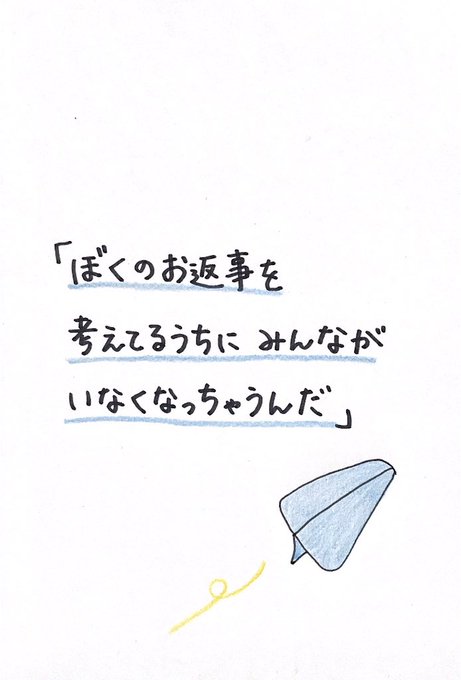 「ぼくのお返事を
考えてるうちに みんなが
いなくなっちゃうんだ」